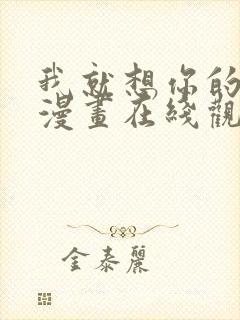 我就想你的
漫畫在綫觀
金泰麗